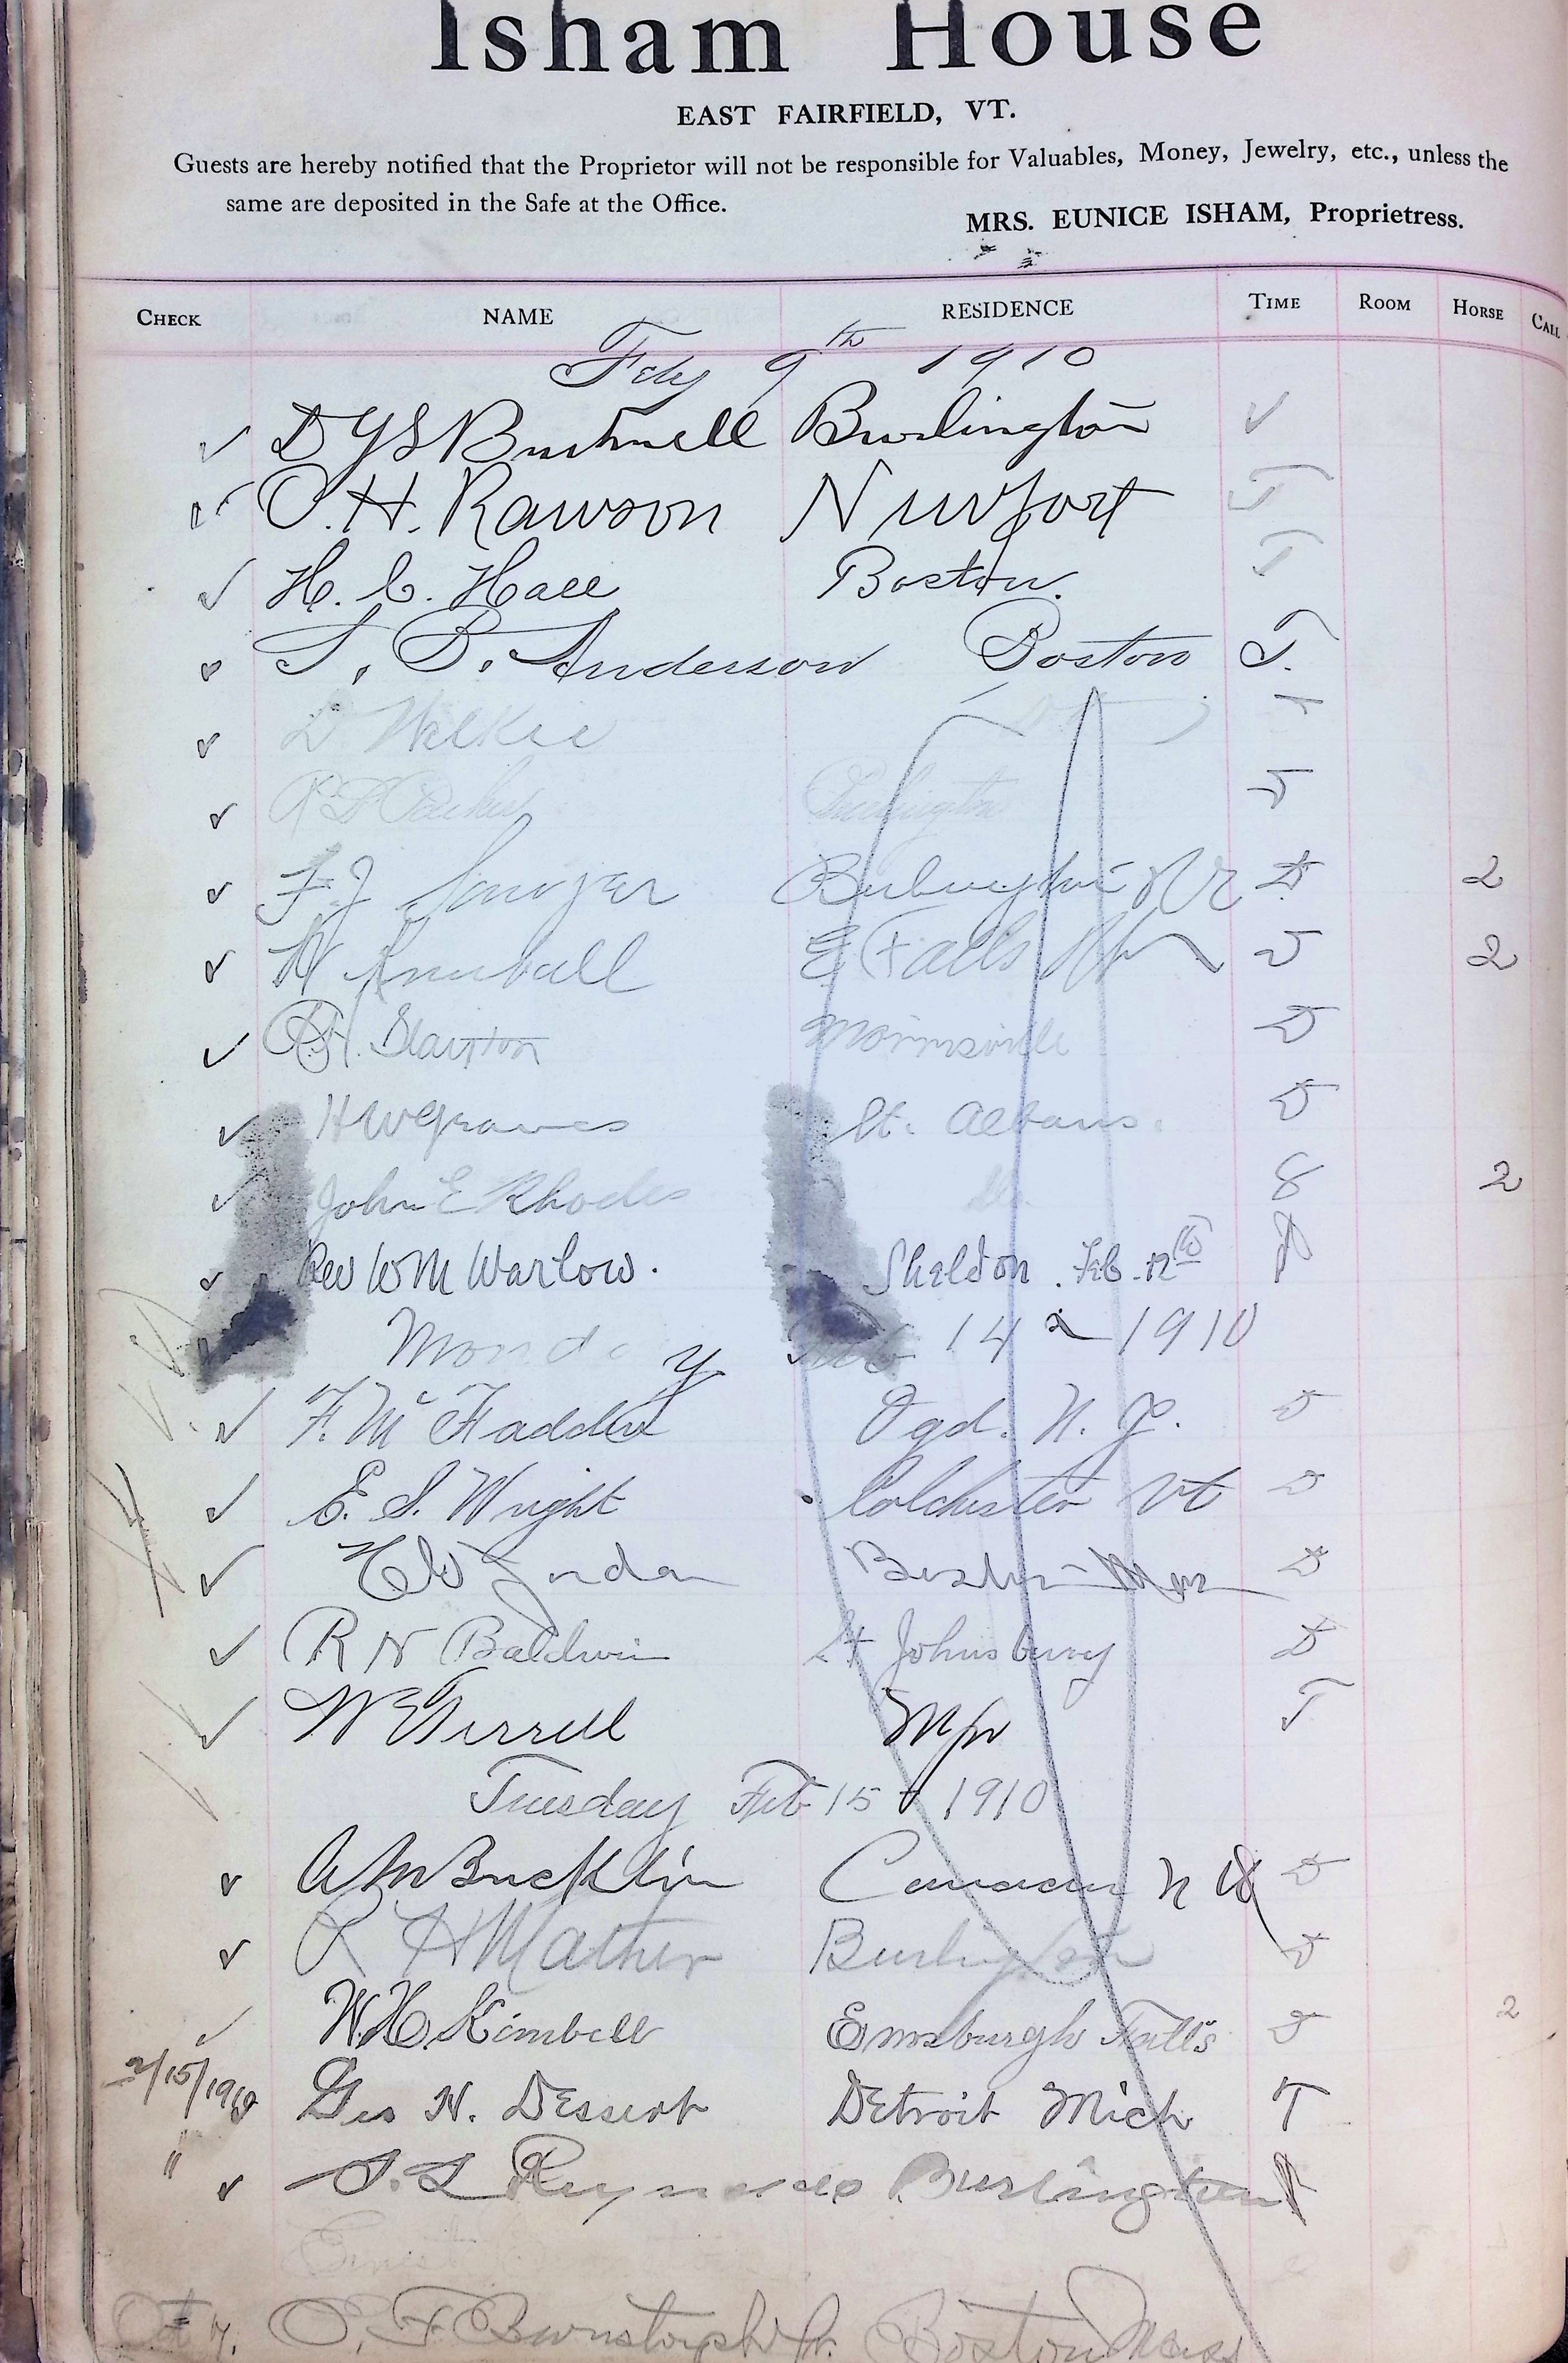 Isham House
EAST FAIRFIELD, VT.
Guests are hereby notified that the Proprietor will not be responsible for Valuables, Money, Jewelry, etc., unless the
same are deposited in the Safe at the Office.
MRS. EUNICE ISHAM, Proprietress.
CHECK NAME RESIDENCE TIME ROOM HORSE CALL
Feby 9th 1910
Bushnell Burlington
O. H. Rawson Newport T
H. C. Hall Boston. T
S. B. Anderson Boston T.
D Wilkie
Burlington
F J Sawyer Burlington Vt 2
H Kimball E Falls 2
Morrisville D
H W Graves St. Albans. D
John E Rhodes Do 8 2
Rev W M Warlow. Sheldon. Feb. 12th
Monday Feb 14 1910
F. Mc Fadden Ogd. N. Y. D
E. S. Wright Colchester Vt D
Jordan Boston Mass D
R N Baldwin St Johnsbury D
W E Tirrell Mpr T
Tuesday Feb 15 1910
Bucklin Canaan N H D
R H Mather Burlington D
W. H. Kimball Enosburgh Falls D 2
2/15/1910 Geo N. Dessert Detroit Mich T
" S. L Reynolds Burlington
Ernest
Oct 7. Boston Mass